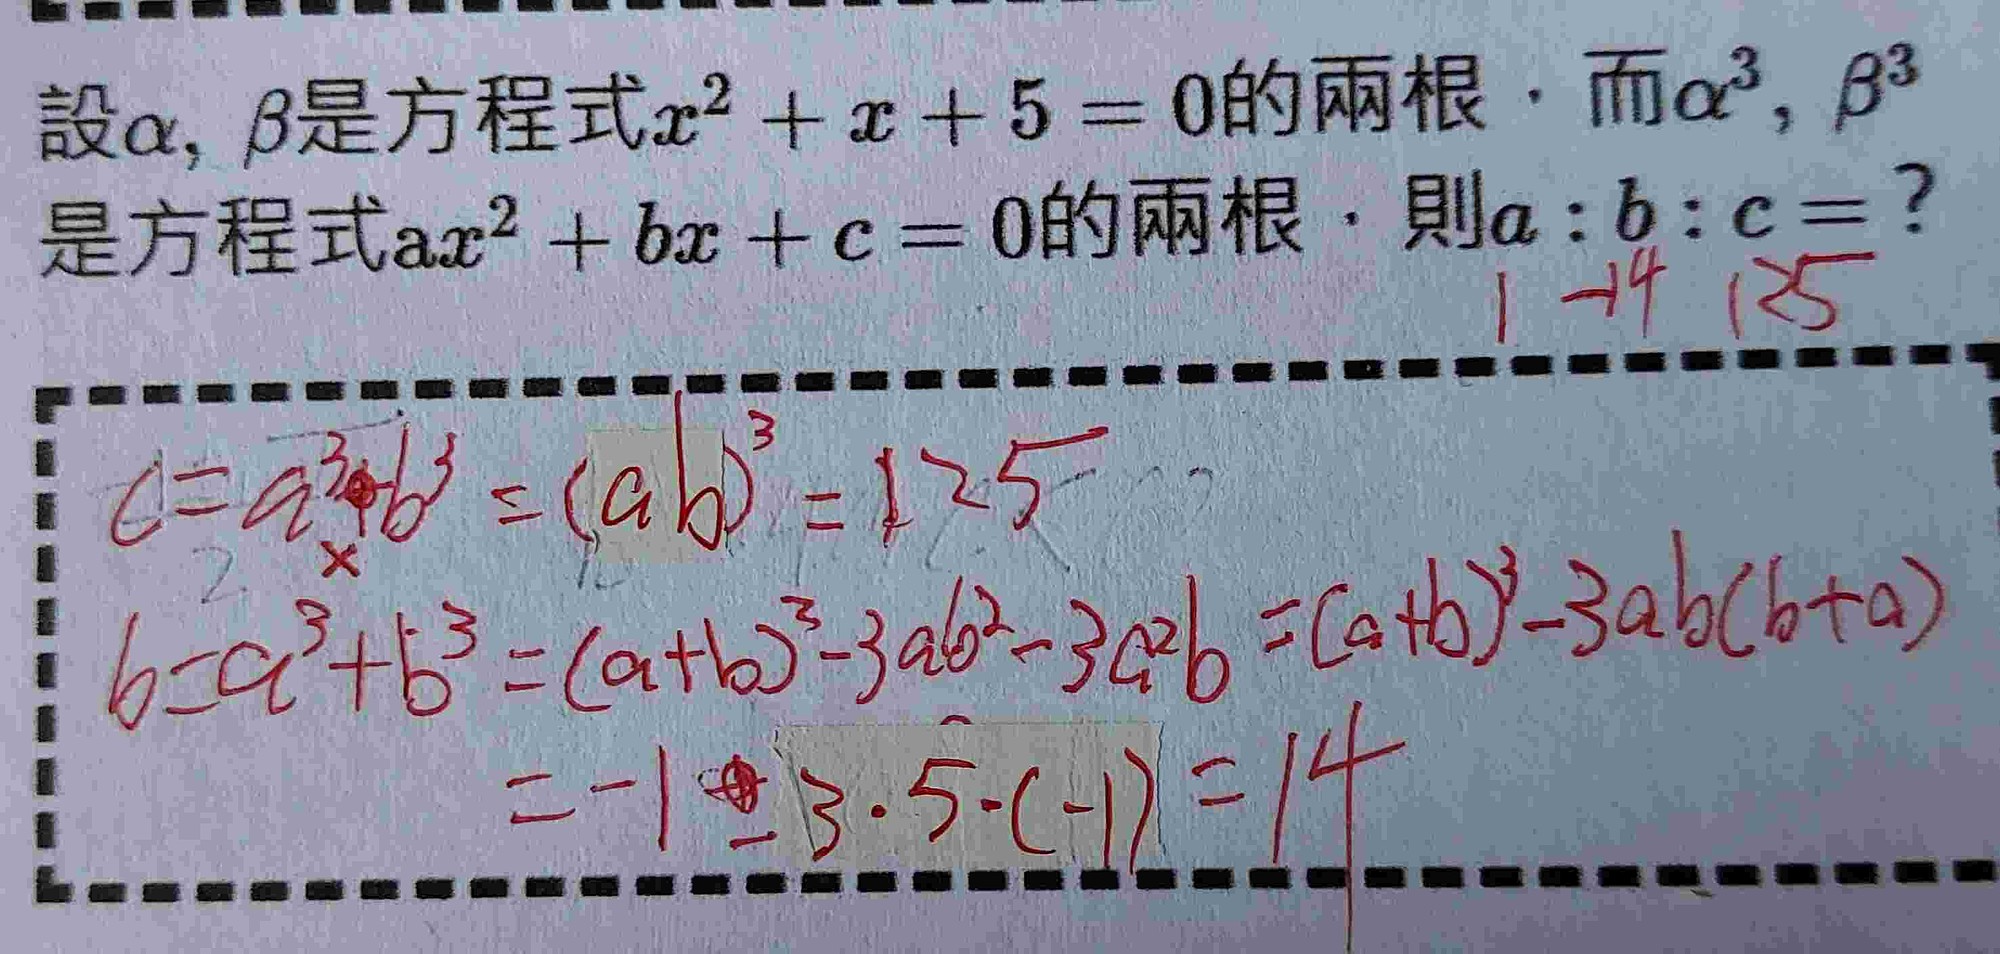 設α, β是方程式x² + x + 5 = 0的兩根．而α³, β³
是方程式ax² + bx + c = 0的兩根．則a : b : c = ?
1 -14 125
c = a³·b³ = (ab)³ = 125
×
b = a³ + b³ = (a+b)³ - 3ab² - 3a²b = (a+b)³ - 3ab(b+a)
= -1 - 3·5·(-1) = 14